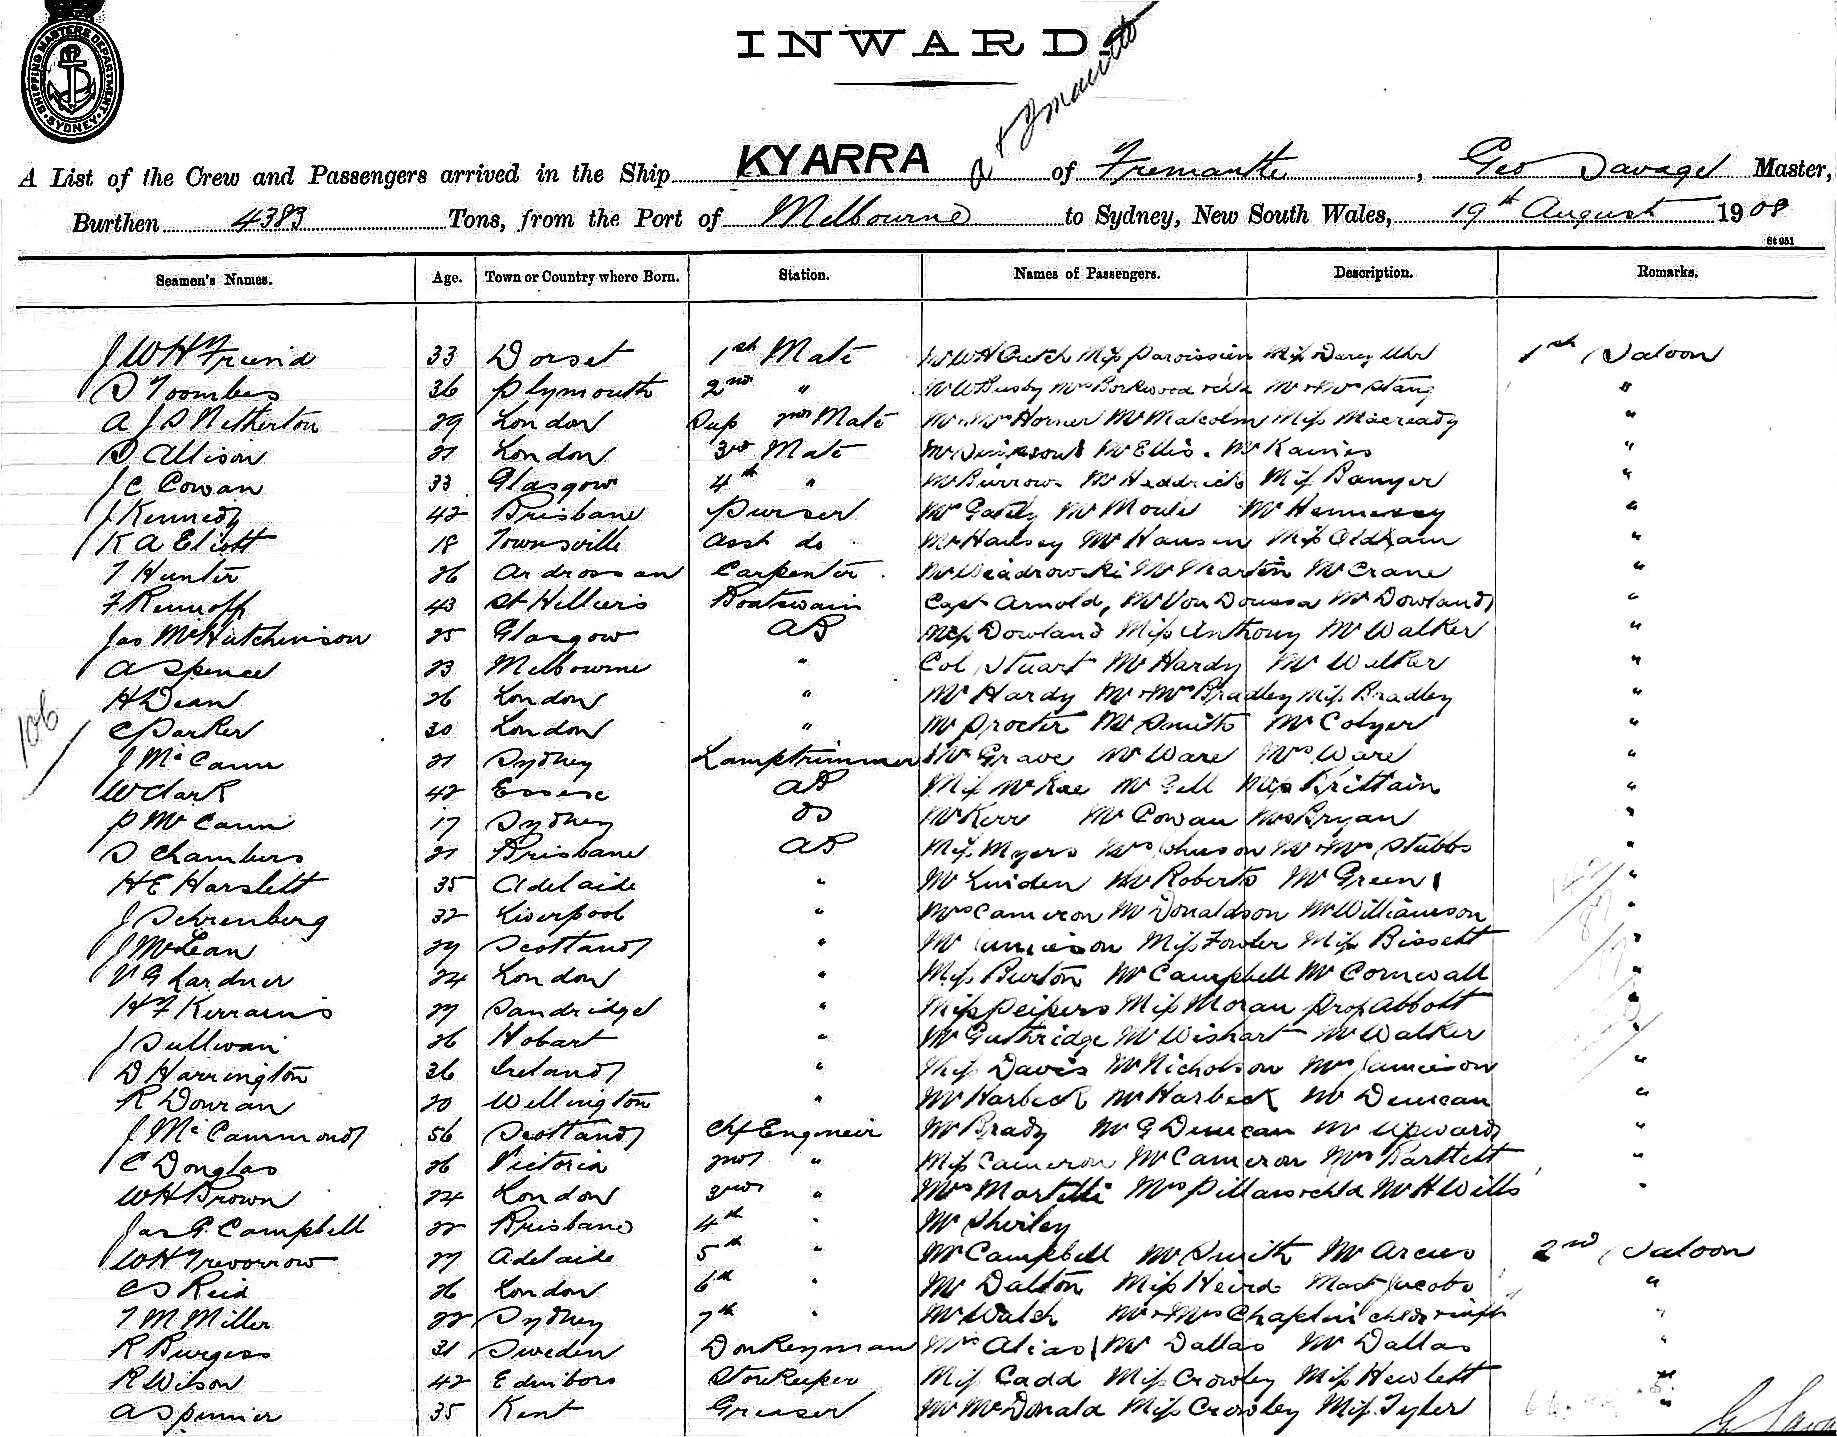 SHIPPING MASTERS DEPARTMENT SYDNEY
INWARD.
A List of the Crew and Passengers arrived in the Ship KYARRA of Fremantle, Geo Savage Master,
Burthen 4383 Tons, from the Port of Melbourne to Sydney, New South Wales, 19th August 1908
St 951
Seamen's Names. Age. Town or Country where Born. Station. Names of Passengers. Description. Remarks.
J W H Friend 33 Dorset 1st Mate Miss Darcy Uhr 1st Saloon
S Toombes 36 Plymouth 2nd " Mr W Busby Mr & Mrs Stang "
A J S Netherton 29 London Sup 2nd Mate Mr & Mrs Horner Mr Malcolm Miss Macready "
S Allison 21 London 3rd Mate Mr Ellis Mr Kaines "
J C Cowan 33 Glasgow 4th " Mr Burrows Mr Heddrick Miss Banyer "
J Kennedy 42 Brisbane Purser Mr Moule Mr Hennessy "
K A Eliott 18 Townsville Asst do Mr Hansen Miss Oldham "
T Hunter 26 Ardrossan Carpenter Mr Martin Mr Crane "
43 St Helliers Boatswain Capt Arnold, Mr Von Doussa Mr Dowland "
Jas McHutchinson 25 Glasgow AB Miss Dowland Miss Anthony Mr Walker "
A Spence 23 Melbourne " Col Stuart Mr Hardy Mr Walker "
H Dean 26 London " Mr Hardy Mr & Mrs Bradley Miss Bradley "
106
C Parker 30 London " Mr Procter Mr Smith Mr Colyer "
J McCann 21 Sydney Lamptrimmer Mr Grave Mr Ware Mrs Ware "
W Clark 42 Essex AB Miss McRae Mr Gell Miss Brittain "
P McCann 17 Sydney OS Mr Kerr Mr Cowan Miss Bryan "
S Chambers 21 Brisbane AB Miss Myers Mrs Johnson Mr & Mrs Stubbs "
H E Harslett 35 Adelaide " Mr Linden Mr Roberts Mr Green "
J Schrenberg 32 Liverpool " Mrs Cameron Mr Donaldson Mr Williamson "
J McLean 29 Scotland " Mr Jamieson Miss Fowler Miss Bissett "
V G Lardner 24 London " Miss Burton Mr Campbell Mr Cornwall "
H F Kerrains 27 Sandridge " Miss Peipers Miss Moran Prof Abbott "
J Sullivan 26 Hobart " Mr Guthridge Mr Wishart Mr Walker
D Harrington 36 Ireland " Miss Davis Mr Nicholson Mrs Jamieson "
R Dowran 20 Wellington " Mr Harbeck Mr Harbeck Mr Duncan "
J McCammond 56 Scotland Chf Engineir Mr Brady Mr G Duncan Mr Upward "
C Douglas 26 Victoria 2nd " Miss Cameron Mr Cameron Mrs Bartlett "
W H Brown 24 London 3rd " Mrs Martelli Mrs Pillars & chld Mr H Wills "
Jas G Campbell 22 Brisbane 4th " Mr Shirley
W H Trevorrow 27 Adelaide 5th " Mr Campbell Mr Smith Mr Arcus 2nd Saloon
C S Reid 26 London 6th " Mr Dalton Miss Heird Mast Jacobs "
T M Miller 22 Sydney 7th " Mr Walch Mr & Mrs Chaplin "
R Burgess 31 Sweden Donkeyman Mrs Alias Mr Dallas Mr Dallas "
R Wilson 42 Edinboro Storekeeper Miss Cadd Miss Crowley Miss Hewlett "
A Spencer 35 Kent Greaser Mr McDonald Miss Crowley Miss Tyler "